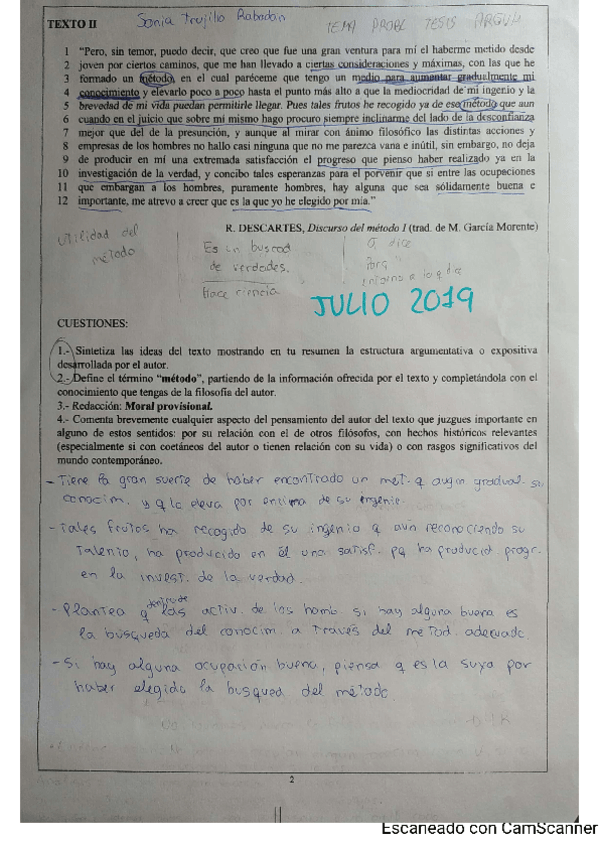 TEXTO II
Sonia Trujillo Rabadán
TEMA PROBL TESIS ARGUM
1 "Pero, sin temor, puedo decir, que creo que fue una gran ventura para mí el haberme metido desde
2 joven por ciertos caminos, que me han llevado a ciertas consideraciones y máximas, con las que he
3 formado un método, en el cual paréceme que tengo un medio para aumentar gradualmente mi
4 conocimiento y elevarlo poco a poco hasta el punto más alto a que la mediocridad de mi ingenio y la
5 brevedad de mi vida puedan permitirle llegar. Pues tales frutos he recogido ya de ese método que aun
6 cuando en el juicio que sobre mi mismo hago procuro siempre inclinarme del lado de la desconfianza
7 mejor que del de la presunción, y aunque al mirar con ánimo filosófico las distintas acciones y
8 empresas de los hombres no hallo casi ninguna que no me parezca vana e inútil, sin embargo, no deja
9 de producir en mí una extremada satisfacción el progreso que pienso haber realizado ya en la
10 investigación de la verdad, y concibo tales esperanzas para el porvenir que si entre las ocupaciones
11 que embargan a los hombres, puramente hombres, hay alguna que sea sólidamente buena e
12 importante, me atrevo a creer que es la que yo he elegido por mía."
R. DESCARTES, Discurso del método I (trad. de M. García Morente)
Utilidad del
método
Es un buscad
de verdades.
Hace ciencia
dice
JULIO 2019
CUESTIONES:
1.- Sintetiza las ideas del texto mostrando en tu resumen la estructura argumentativa o expositiva
desarrollada por el autor.
2.- Define el término "método", partiendo de la información ofrecida por el texto y completándola con el
conocimiento que tengas de la filosofía del autor.
3.- Redacción: Moral provisional.
4.- Comenta brevemente cualquier aspecto del pensamiento del autor del texto que juzgues importante en
alguno de estos sentidos: por su relación con el de otros filósofos, con hechos históricos relevantes
(especialmente si con coetáneos del autor o tienen relación con su vida) o con rasgos significativos del
mundo contemporáneo.
- Tiene la gran suerte de haber encontrado un met. q augm gradual. su
conocim. y q lo eleva por encima de su ingenio.
- Tales frutos ha recogido de su ingenio q aun reconociendo su
talento, ha producido en él una satisf. pq ha producid progr.
en la invest. de la verdad.
- Plantea q dentro de las activ. de los homb. si hay alguna buena es
la búsqueda del conocim. a través del metod. adecuado.
- Si hay alguna ocupación buena, piensa q es la suya por
haber elegido la busqueda del método.
2
Escaneado con CamScanner